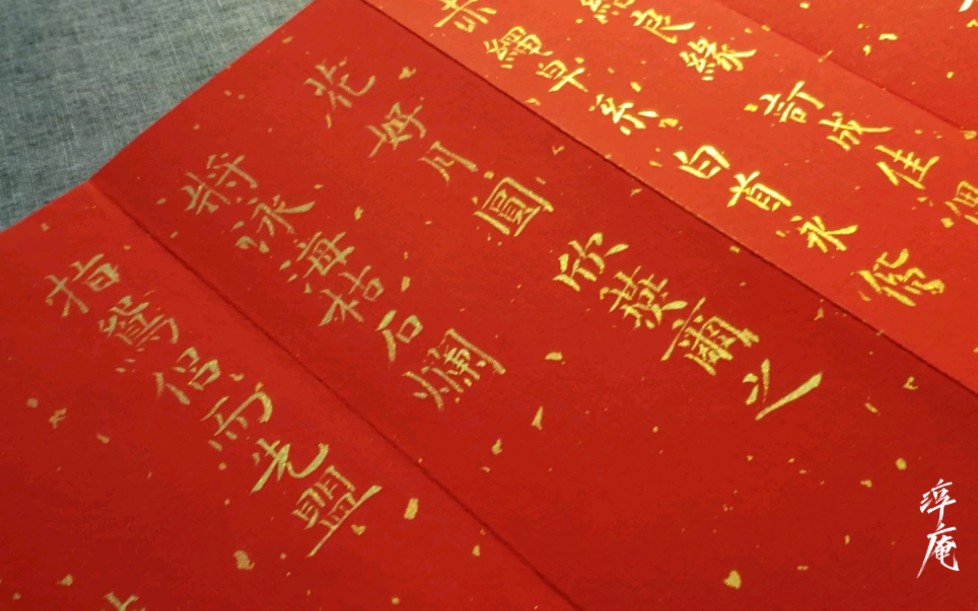 結良緣 訂成佳偶
赤繩早系 白首永偕
花好月圓 欣燕爾之
將泳海枯石爛
指鴛侶而先盟
淳庵